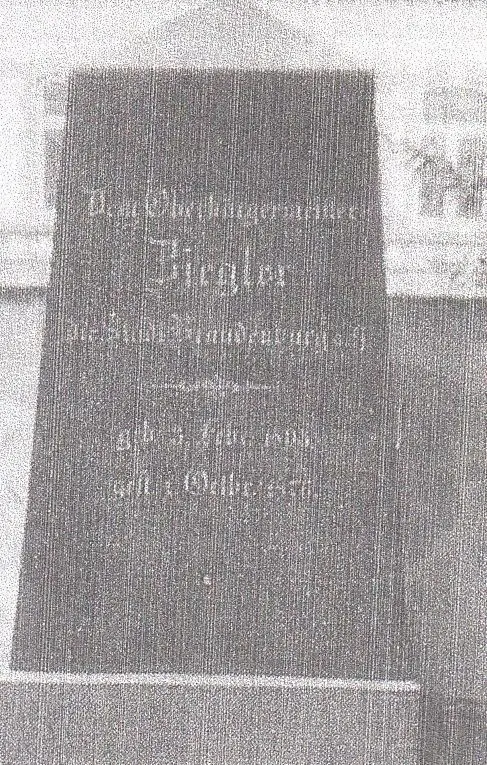 Dem Oberbürgermeister
Ziegler
die Stadt Brandenburg a. H.
geb. 3. Febr. 1803.
gest. 1 Octbr. 1876.